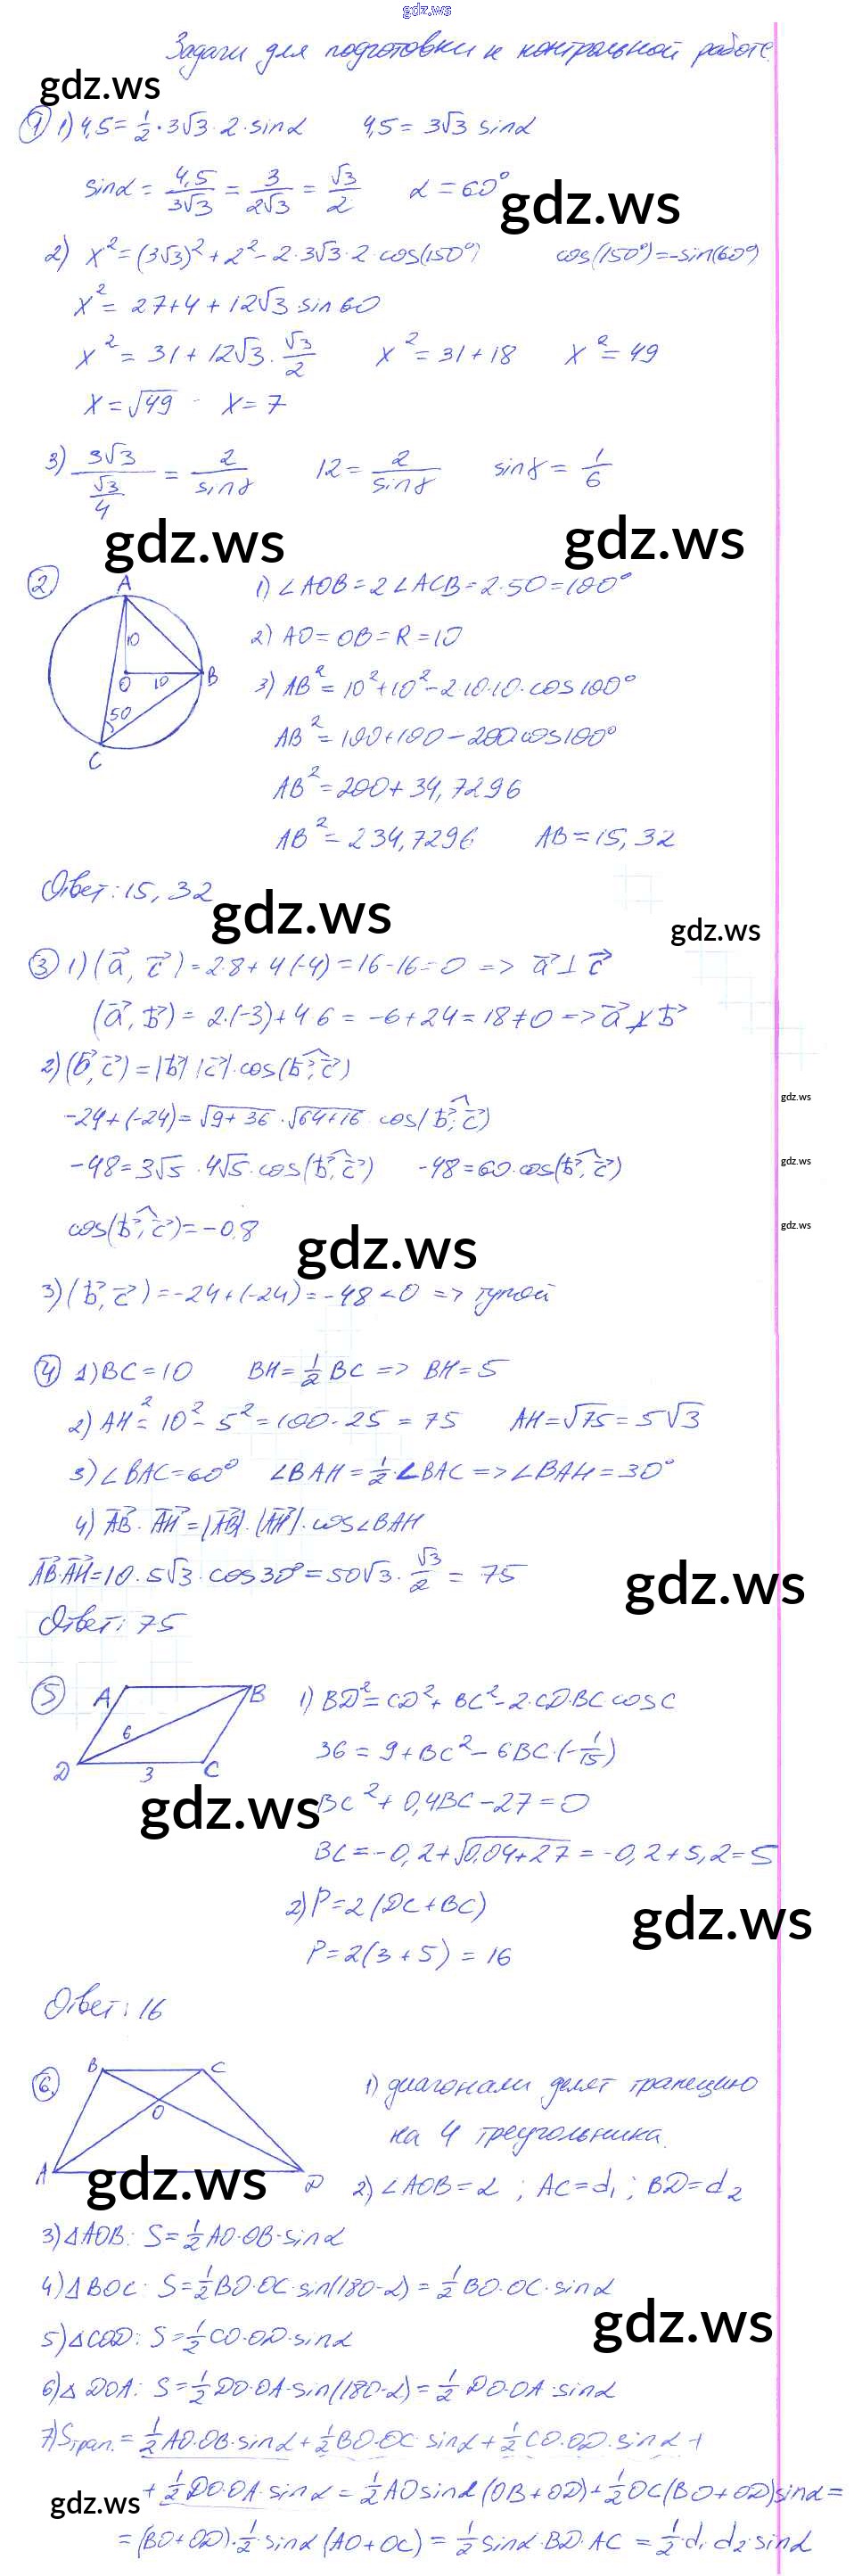 gdz.ws
Задачи для подготовки к контрольной работе
gdz.ws
① 1) 4,5 = 1/2 · 3√3 · 2 · sinα   4,5 = 3√3 sinα
sinα = 4,5/3√3 = 3/2√3 = √3/2   α = 60°
gdz.ws
2) x² = (3√3)² + 2² - 2·3√3·2·cos(150°)   cos(150°) = -sin(60°)
x² = 27 + 4 + 12√3·sin 60
x² = 31 + 12√3 · √3/2   x² = 31 + 18   x² = 49
x = √49   x = 7
3) 3√3/(√3/4) = 2/sinγ   12 = 2/sinγ   sinγ = 1/6
gdz.ws gdz.ws
② A 10 O 10 B 50 C
1) ∠AOB = 2∠ACB = 2·50 = 100°
2) AO = OB = R = 10
3) AB² = 10² + 10² - 2·10·10·cos100°
AB² = 100 + 100 - 200cos100°
AB² = 200 + 34,7296
AB² = 234,7296   AB = 15,32
Ответ: 15,32
gdz.ws gdz.ws
③ 1) (a⃗, c⃗) = 2·8 + 4(-4) = 16 - 16 = 0 => a⃗ ⊥ c⃗
(a⃗, b⃗) = 2·(-3) + 4·6 = -6 + 24 = 18 ≠ 0 => a⃗ ⊥̸ b⃗
2) (b⃗, c⃗) = |b⃗| |c⃗|·cos(b⃗, c⃗)
gdz.ws
-24 + (-24) = √9+36 · √64+16 · cos(b⃗; c⃗)
-48 = 3√5 · 4√5 · cos(b⃗, c⃗)   -48 = 60·cos(b⃗, c⃗)
gdz.ws
cos(b⃗, c⃗) = -0,8
gdz.ws
gdz.ws
3) (b⃗, c⃗) = -24 + (-24) = -48 < 0 => тупой
④ 1) BC = 10   BH = 1/2 BC => BH = 5
2) AH² = 10² - 5² = 100 - 25 = 75   AH = √75 = 5√3
3) ∠BAC = 60°   ∠BAH = 1/2·∠BAC => ∠BAH = 30°
4) AB⃗ · AH⃗ = |AB⃗|·|AH⃗|·cos∠BAH
AB⃗·AH⃗ = 10·5√3·cos30° = 50√3 · √3/2 = 75
gdz.ws
Ответ: 75
⑤ A B 6 D 3 C
1) BD² = CD² + BC² - 2·CD·BC·cosC
36 = 9 + BC² - 6BC·(-1/15)
gdz.ws
BC² + 0,4BC - 27 = 0
BC = -0,2 + √0,04+27 = -0,2 + 5,2 = 5
2) P = 2(DC + BC)
gdz.ws
P = 2(3 + 5) = 16
Ответ: 16
⑥ B C O A D
1) диагонали делят трапецию
на 4 треугольника.
gdz.ws
2) ∠AOB = α; AC = d₁; BD = d₂
3) △AOB: S = 1/2 AO·OB·sinα
4) △BOC: S = 1/2 BO·OC·sin(180-α) = 1/2 BO·OC·sinα
gdz.ws
5) △COD: S = 1/2 CO·OD·sinα
6) △DOA: S = 1/2 DO·OA·sin(180-α) = 1/2 DO·OA·sinα
7) Sтрап. = 1/2 AO·OB·sinα + 1/2 BO·OC·sinα + 1/2 CO·OD·sinα +
+ 1/2 DO·OA·sinα = 1/2 AOsinα(OB + OD) + 1/2 OC(BO + OD)sinα =
gdz.ws
= (BO + OD)·1/2·sinα(AO + OC) = 1/2 sinα·BD·AC = 1/2·d₁·d₂·sinα